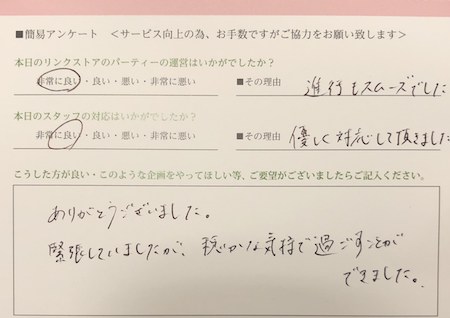 ■簡易アンケート <サービス向上の為、お手数ですがご協力をお願い致します>
本日のリンクストアのパーティーの運営はいかがでしたか?
非常に良い・良い・悪い・非常に悪い ■その理由 進行もスムーズでした
本日のスタッフの対応はいかがでしたか?
非常に良い・良い・悪い・非常に悪い ■その理由 優しく対応して頂きました
こうした方が良い・このような企画をやってほしい等、ご要望がございましたらご記入ください。
ありがとうございました。
緊張していましたが、穏かな気持で過ごすことが
できました。